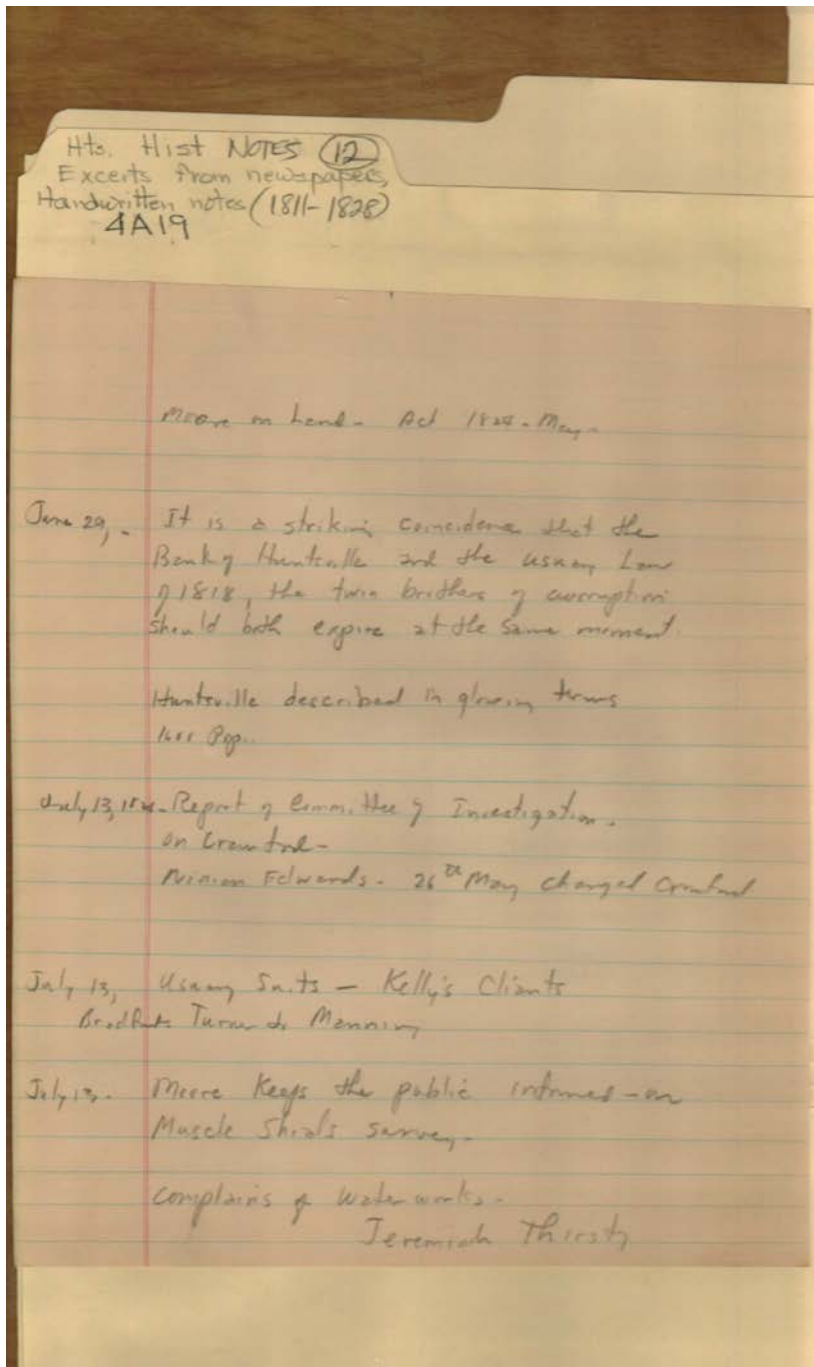 Hts. Hist NOTES 12
Excerts from newspapers,
Handwritten notes (1811-1828)
4A19
Moore on Land - Act 1824 - May -
June 29, - It is a striking coincidence that the
Bank of Huntsville and the usury Law
of 1818, the twin brothers of corruption
should both expire at the same moment.
Huntsville described in glowing terms
Pop.
July 13, 1824 - Report of Committee of Investigation.
on Crawford -
Ninian Edwards - 26th May charged Crawford
July 13, Usury Suits - Kelly's Clients
Turner to Manning
July 13. Moore Keeps the public informed - on
Muscle Shoals survey.
Complains of Water works -
Jeremiah Thirsty